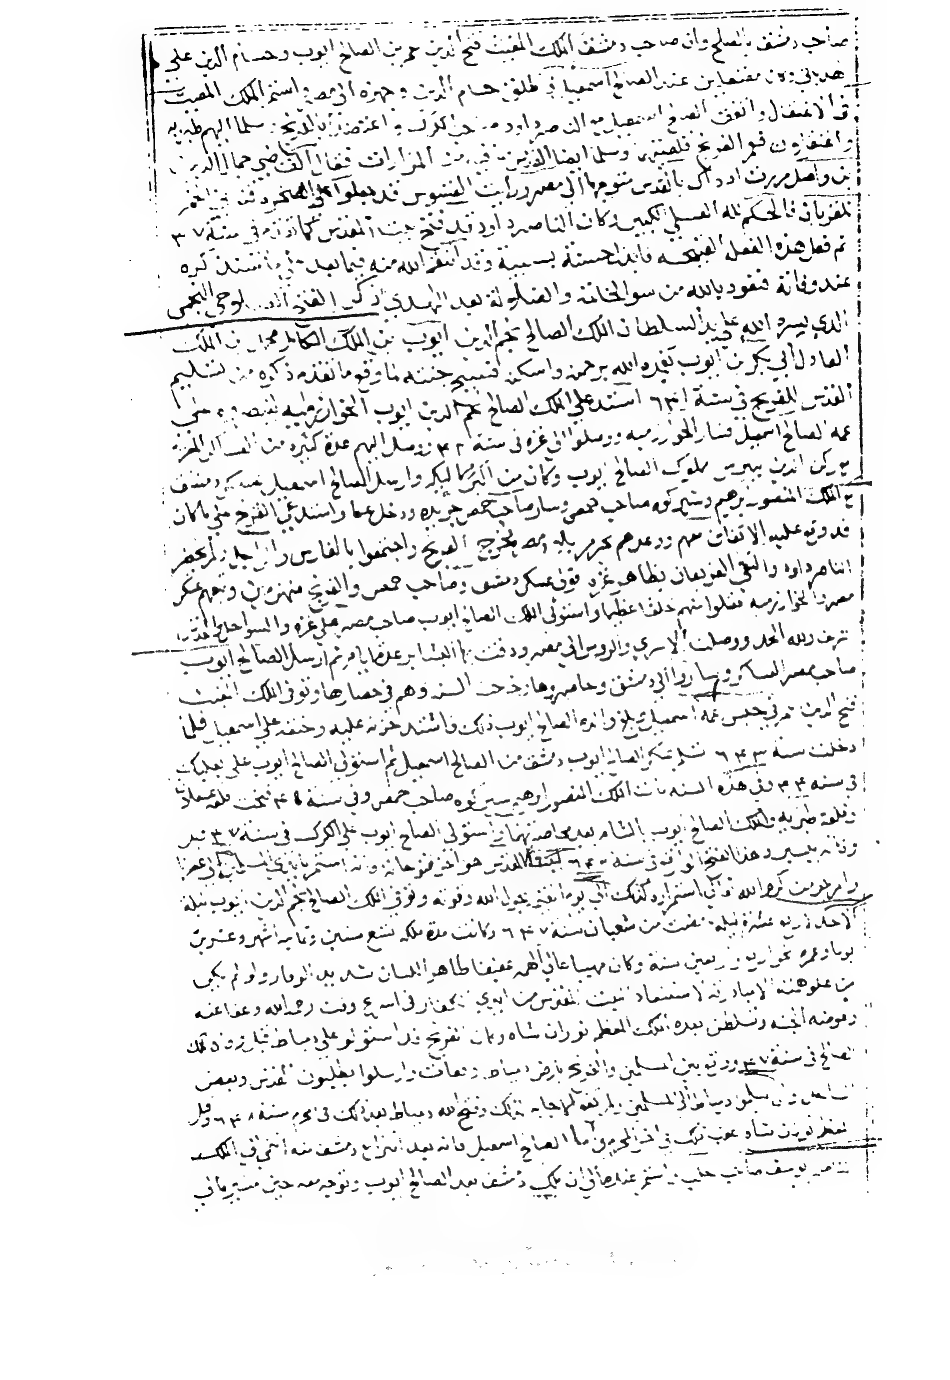 صاحب دمشق بالصلح وان صاحب دمشق الملك المغيث فتح الدين عمر بن الصالح ايوب وحسام الدين علي
هدباني وكان معتقلين عند الصالح اسمعيل فاطلق حسام الدين وجهزه الى مصر واستمر الملك المغيث
في الاعتقال واتفق الصالح اسمعيل مع الناصر داود صاحب الكرك واعتضدا بالفريج وسلما اليهم طبريه
وعسقلان فعمر الفريج قلعتيهما وسلما ايضا القدس بما فيه من المزارات فقال القاضي جمال الدين
بن واصل مررت اذ ذاك بالقدس متوجها الى مصر ورايت القسوس قد جعلوا على الصخره قناني الخمر
للقربان فالحكم لله العلي الكبير وكان الناصر داود قد فتح بيت المقدس كما تقدم في سنة ٣٧
ثم فعل هذه الفعله القبيحه فابدل حسنة بسيئة وقد انتقم الله منه فيما بعد
عند وفاته فنعوذ بالله من سوء الخاتمة والضلالة بعد الهدى ذكر الفتح النجمي
الذي يسره الله على يد السلطان الملك الصالح نجم الدين ايوب بن الملك الكامل محمد بن الملك
العادل ابي بكر بن ايوب تغمده الله برحمته واسكنه فسيح جنته لما وقع ما تقدم ذكره من تسليم
القدس للفريج في سنة ٦٤١ استدعى الملك الصالح نجم الدين ايوب الخوارزميه لنصرته على
عمه الصالح اسمعيل فسار الخوارزميه ووصلوا الى غزه في سنة ٤٢ ووصل اليهم عدة كثيره من العساكر المصريه
مع ركن الدين بيبرس مملوك الصالح ايوب وكان من اكبر مماليكه وارسل الصالح اسمعيل عسكر دمشق
مع الملك المنصور ابرهيم بن شيركوه صاحب حمص وسار صاحب حمص جريده ودخل عكا واستدعى الفريج على ما كان
قد وقع عليه الاتفاق معهم ووعدهم بجزء من بلاد مصر فخرج الفريج واجتمعوا بالفارس والراجل ولم يحضر
الناصر داود والتقى الفريقان بظاهر غزه فولى عسكر دمشق وصاحب حمص والفريج منهزمين وتبعهم عسكر
مصر والخوارزميه فقتلوا منهم خلقا عظيما واستولى الملك الصالح ايوب صاحب مصر على غزه والسواحل والقدس
ولله الحمد ووصلت الاسرى والروس الى مصر ودقت بها البشاير عدة ايام ثم ارسل الصالح ايوب
صاحب مصر العساكر وساروا الى دمشق وحاصروها وخرجت السنه وهم في حصارها وتوفي الملك المغيث
فتح الدين عمر في حبس عمه اسمعيل وبلغ والده الصالح ايوب ذلك فاشتد حزنه عليه وحنقه على اسمعيل فلما
دخلت سنة ٦٤٣ تسلم عسكر الصالح ايوب دمشق من الصالح اسمعيل ثم استولى الصالح ايوب على بعلبك
في سنه ٤٤ وفي هذه السنه مات الملك المنصور ابرهيم بن شيركوه صاحب حمص وفي سنة ٤٥ فتحت قلعة عسقلان
وقلعة طبريه والملك الصالح ايوب بالشام بعد محاصرتهما واستولى الصالح ايوب على الكرك في سنة ٤٧ قبل
وفاته بيسير وهذا الفتح الواقع في سنة ٦٤٢ لبيت المقدس هو اخر فتوحاته وانه استمر بايدي المسلمين الى عصرنا
والمرجو من كرم الله تعالى استمراره كذلك الى يوم القيمه بحول الله وقوته وتوفي الملك الصالح نجم الدين ايوب ليلة
الاحد لاربع عشرة ليلة مضت من شعبان سنة ٦٤٧ وكانت مدة ملكه تسع سنين وثمانيه اشهر وعشرين
يوما وعمره نحو اربع واربعين سنة وكان مهيبا عالي الهمه عفيفا طاهر اللسان شديد الوقار ولو لم يكن
من علو همته الا مبادرته لاستنقاذ بيت المقدس من ايدي الكفار في اسرع وقت رحمه الله وعفا عنه
وعوضه الجنه وتسلطن بعده الملك المعظم توران شاه وكان الفريج قد استولوا على دمياط قبل وفاة الملك
الصالح في سنة ٤٧ ووقع بين المسلمين والفريج بارض دمياط وقعات وارسلوا يطلبون القدس وبعض
الساحل وان يسلموا دمياط الى المسلمين ولم تقع الاجابه لذلك وفتح الله دمياط بعد ذلك في محرم سنة ٦٤٨ وقتل
المعظم توران شاه عقب ذلك في اخر المحرم واما الصالح اسمعيل فانه بعد انتزاع دمشق منه انتمى الى الملك
الناصر يوسف صاحب حلب واستمر عنده الى ان ملك دمشق بعد الصالح ايوب وتوجه معه حين مسيره الى